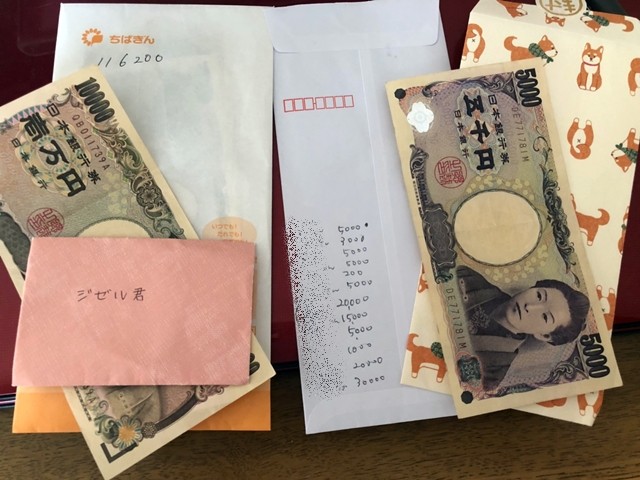 ちばぎん
116200
10000
QB011739A
日本銀行券
壱万円
日本銀行
いつでも!
ジゼル君
5000
3000
5000
5000
200
5000
20000
15000
5000
1000
20000
30000
5000
日本銀行券
五千円
日本銀行
DE771781M
DE771781M
5000